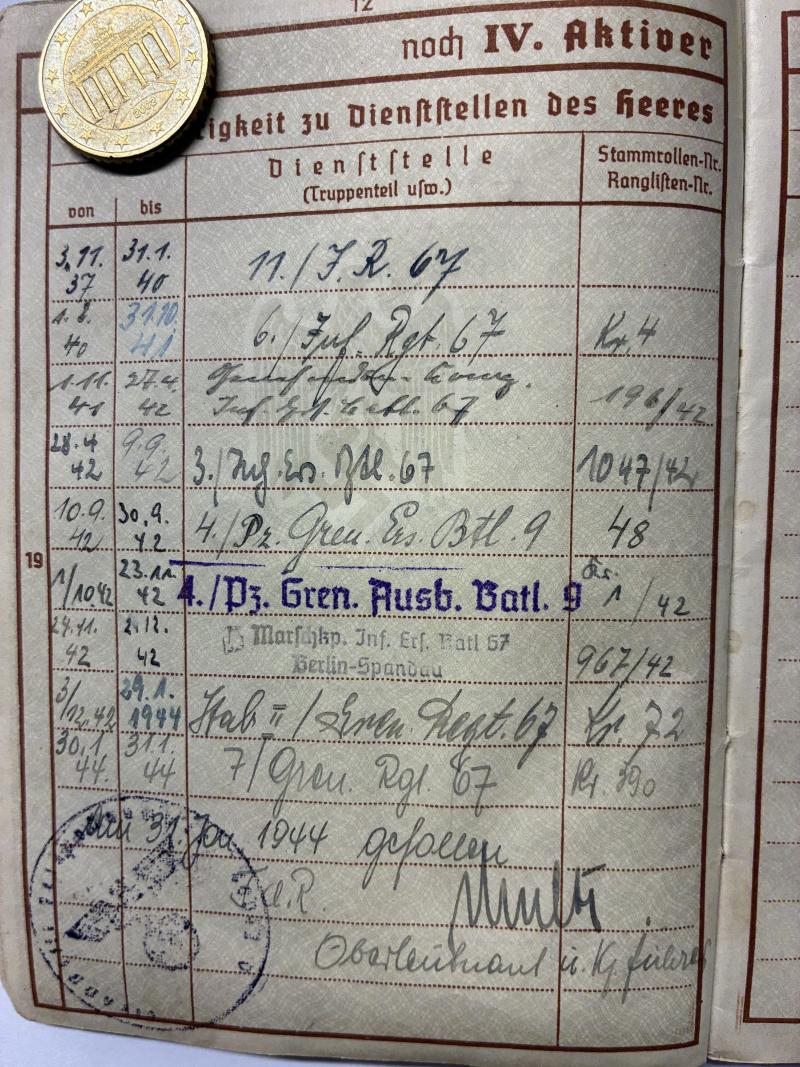 12
noch IV. Aktiver
igkeit zu Dienststellen des Heeres
Dienststelle
(Truppenteil usw.)
Stammrollen-Nr.
Ranglisten-Nr.
von bis
3.11. 37 31.1. 40 11./I.R. 67
1.2. 40 31.10. 41 6./Inf. Rgt. 67 Kr. 4
1.11. 41 27.4. 42 67 196/42
28.4 42 9.9. 42 3./Inf. Ers. Btl. 67 1047/42
10.9. 42 30.9. 42 4./Pz. Gren. Ers. Btl. 9 48
19
1/10.42 23.11. 42 4./Pz. Gren. Ausb. Batl. 9 1/42
24.11. 42 2.12. 42 Marschkp. Inf. Ers. Batl 67
Berlin-Spandau 967/42
3/12.42 29.1. 1944 Stab II/Gren. Regt. 67 Kr. 72
30.1. 44. 31.1. 44 7/Gren. Rgt. 67 Kr. 390
Am 31. Jan 1944 gefallen
Oberleutnant u. Kp. führer